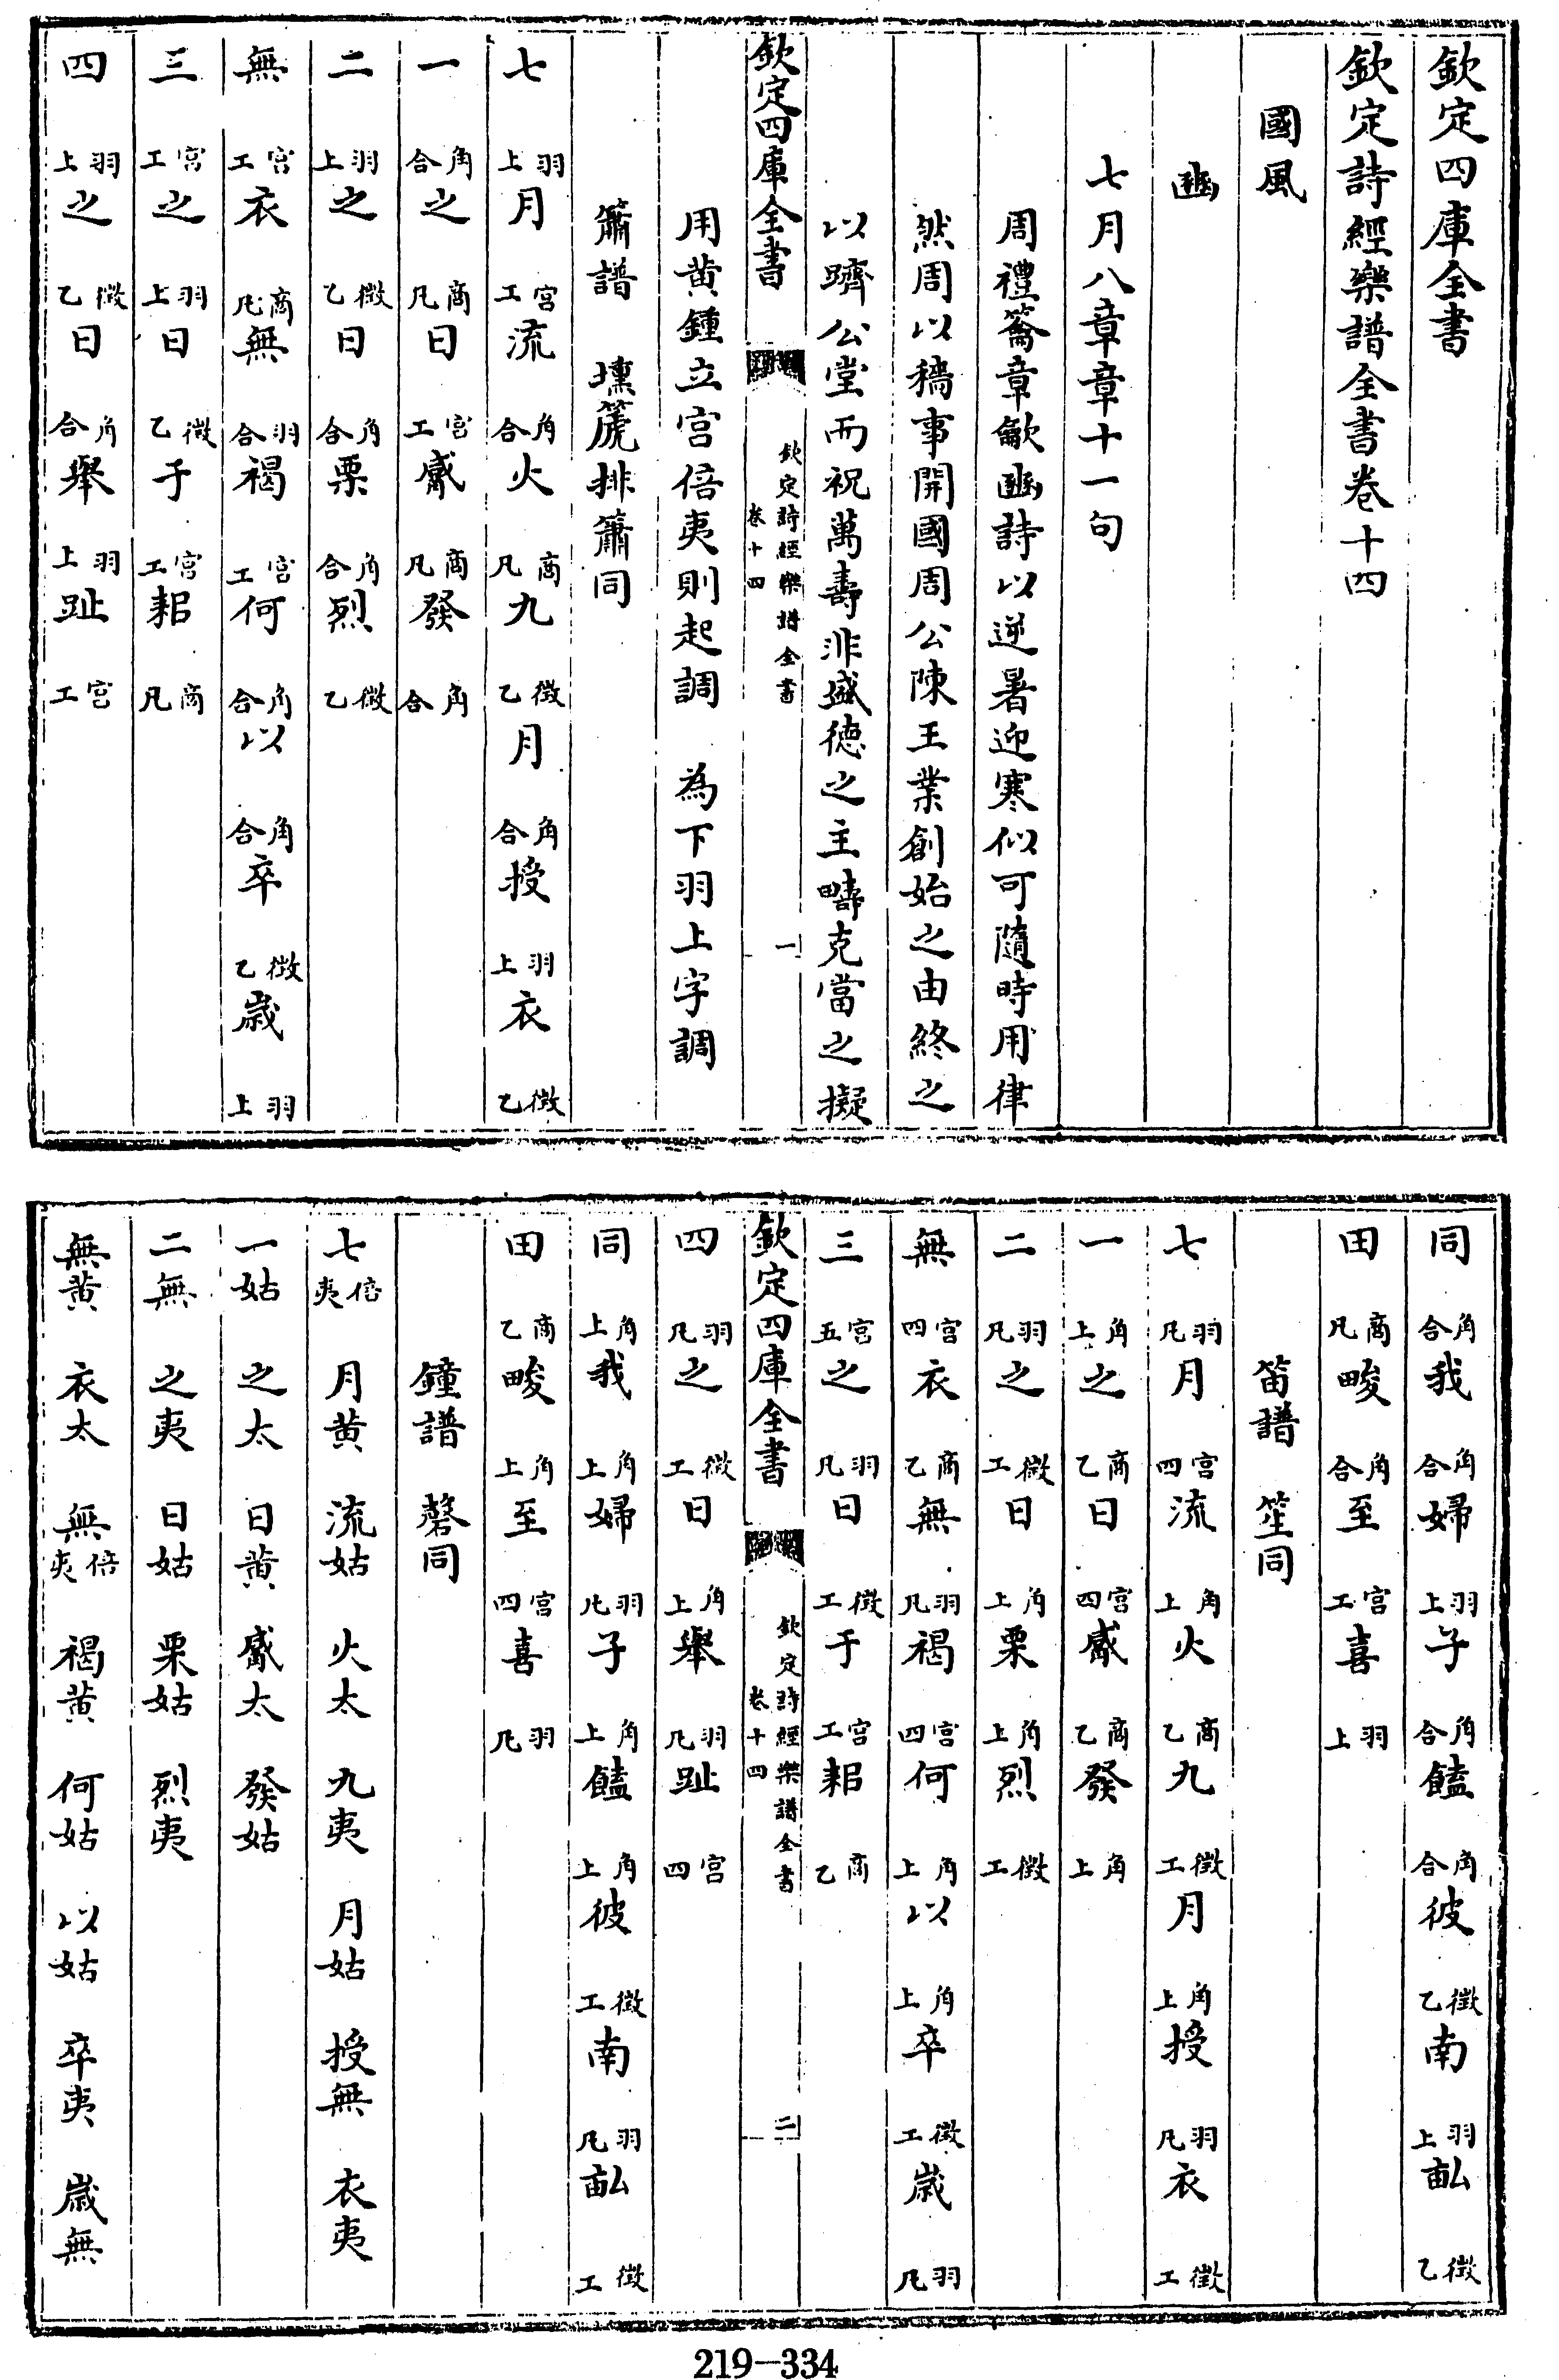 欽定四庫全書
欽定詩經樂譜全書卷十四
國風
豳
七月八章章十一句
周禮籥章龡豳詩以逆暑迎寒似可隨時用律
然周以穡事開國周公陳王業創始之由終之
以躋公堂而祝萬壽非盛德之主疇克當之擬
欽定四庫全書 欽定詩經樂譜全書 卷十四 一
用黄鍾立宮倍夷則起調 為下羽上字調
簫譜 壎篪排簫同
七羽上 月宮工 流角合 火商凡 九徵乙 月角合 授羽上 衣徵乙
一角合 之商凡 日宮工 觱商凡 發角合
二羽上 之徵乙 日角合 栗角合 烈徵乙
無宮工 衣商凡 無羽合 褐宮工 何角合 以角合 卒徵乙 歲羽上
三宮工 之羽上 日徵乙 于宮工 耜商凡
四羽上 之徵乙 日角合 舉羽上 趾宮工
同角合 我角合 婦羽上 子角合 饁角合 彼徵乙 南羽上 畝徵乙
田商凡 畯角合 至宮工 喜羽上
笛譜 笙同
七羽凡 月宮四 流角上 火商乙 九徵工 月角上 授羽凡 衣徵工
一角上 之商乙 日宮四 觱商乙 發角上
二羽凡 之徵工 日角上 栗角上 烈徵工
無宮四 衣商乙 無羽凡 褐宮四 何角上 以角上 卒徵工 歲羽凡
三宮五 之羽凡 日徵工 于宮工 耜商乙
欽定四庫全書 欽定詩經樂譜全書 卷十四 二
四羽凡 之徵工 日角上 舉羽凡 趾宮四
同角上 我角上 婦羽凡 子角上 饁角上 彼徵工 南羽凡 畝徵工
田商乙 畯角上 至宮四 喜羽凡
鐘譜 磬同
七倍夷 月黄 流姑 火太 九夷 月姑 授無 衣夷
一姑 之太 日黄 觱太 發姑
二無 之夷 日姑 栗姑 烈夷
無黄 衣太 無倍夷 褐黄 何姑 以姑 卒夷 歲無
219—334